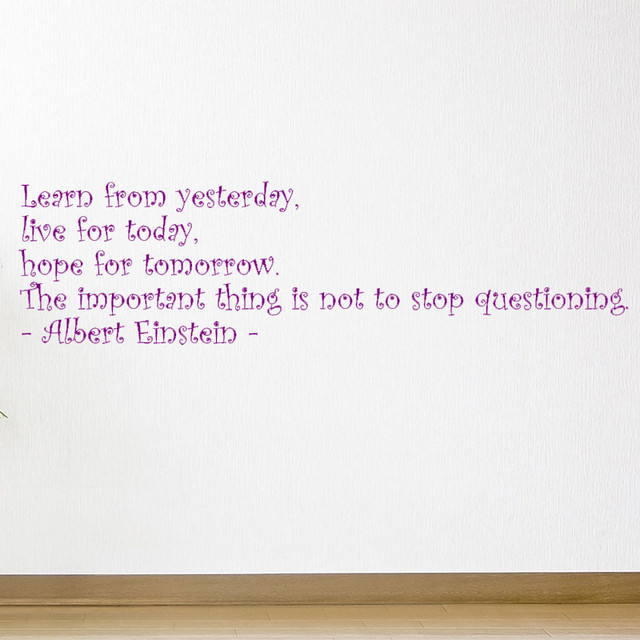 Learn from yesterday,
live for today,
hope for tomorrow.
The important thing is not to stop questioning.
- Albert Einstein -